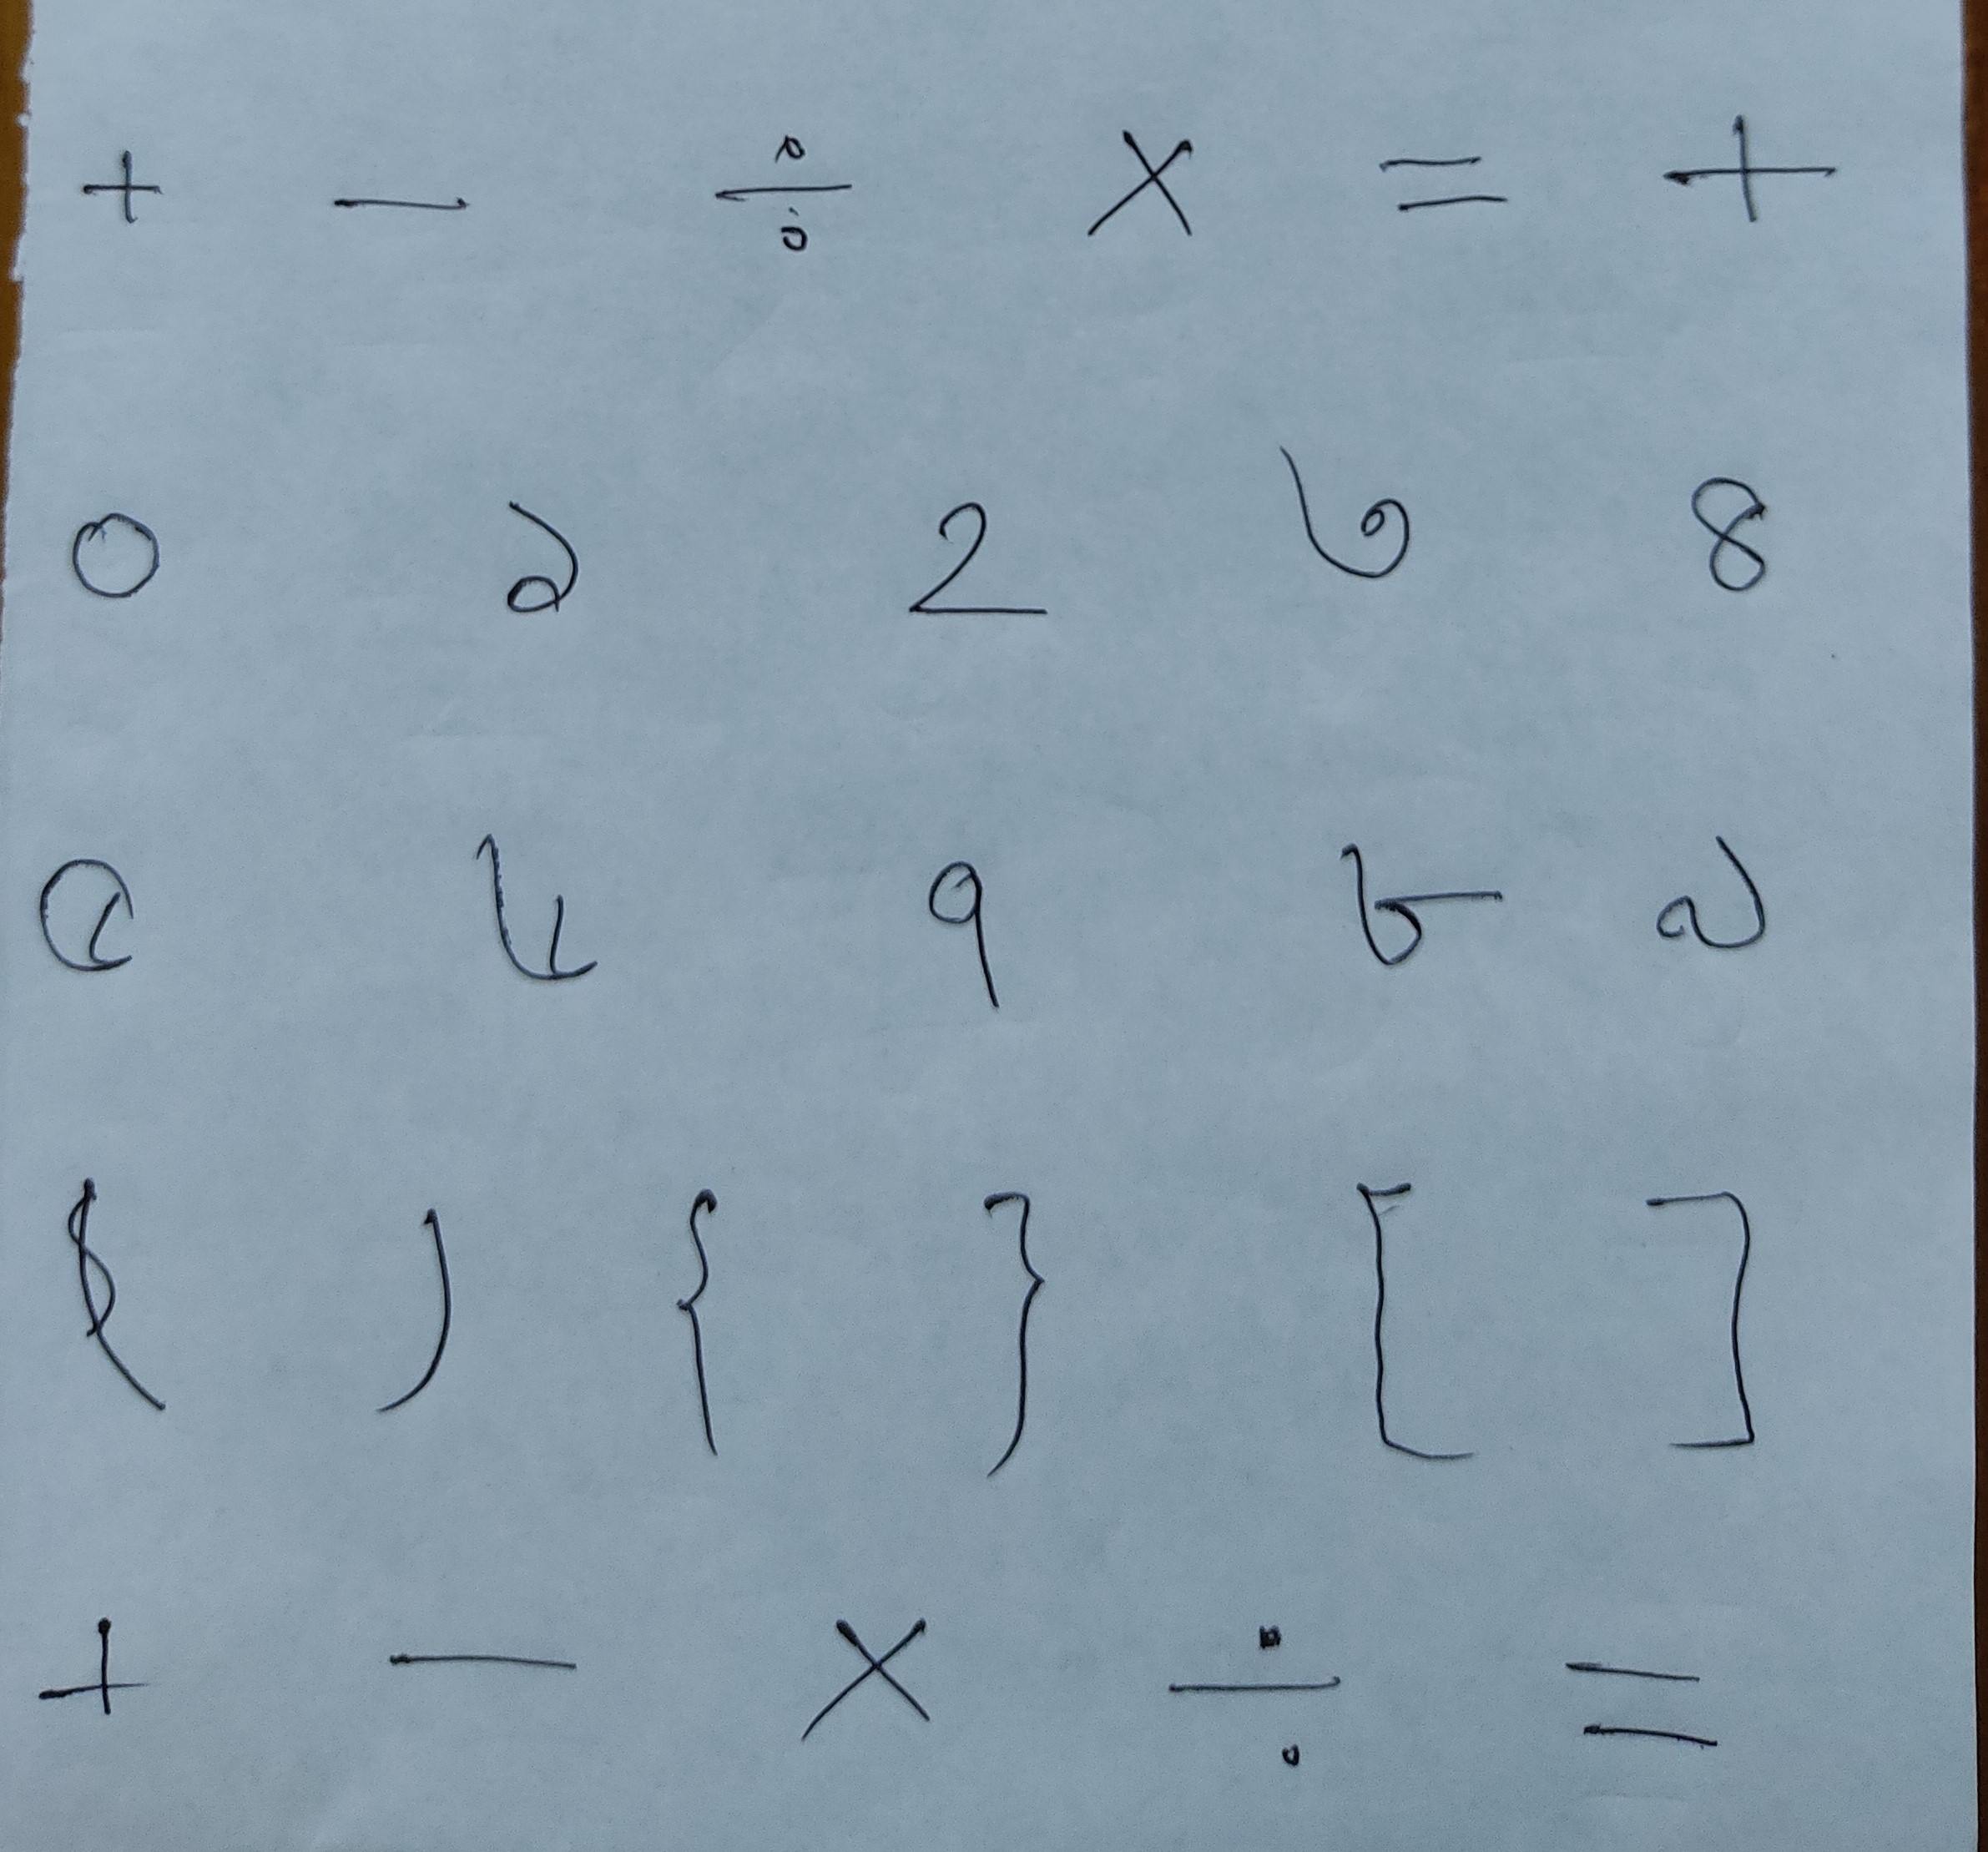 + - ÷ × = +
০ ১ ২ ৩ ৪
৫ ৬ ৭ ৮ ৯
( ) { } [ ]
+ - × ÷ =